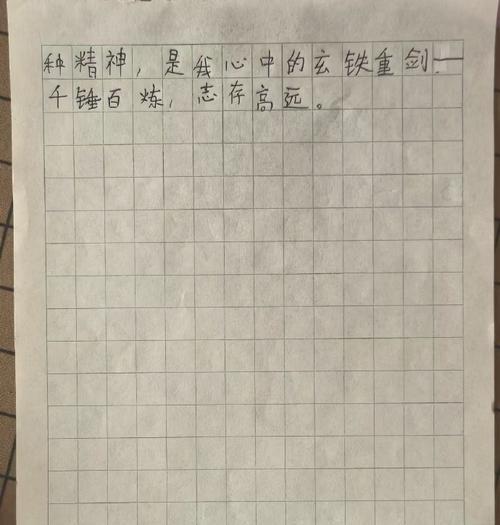 种精神，是我心中的玄铁重剑—
千锤百炼，志存高远。